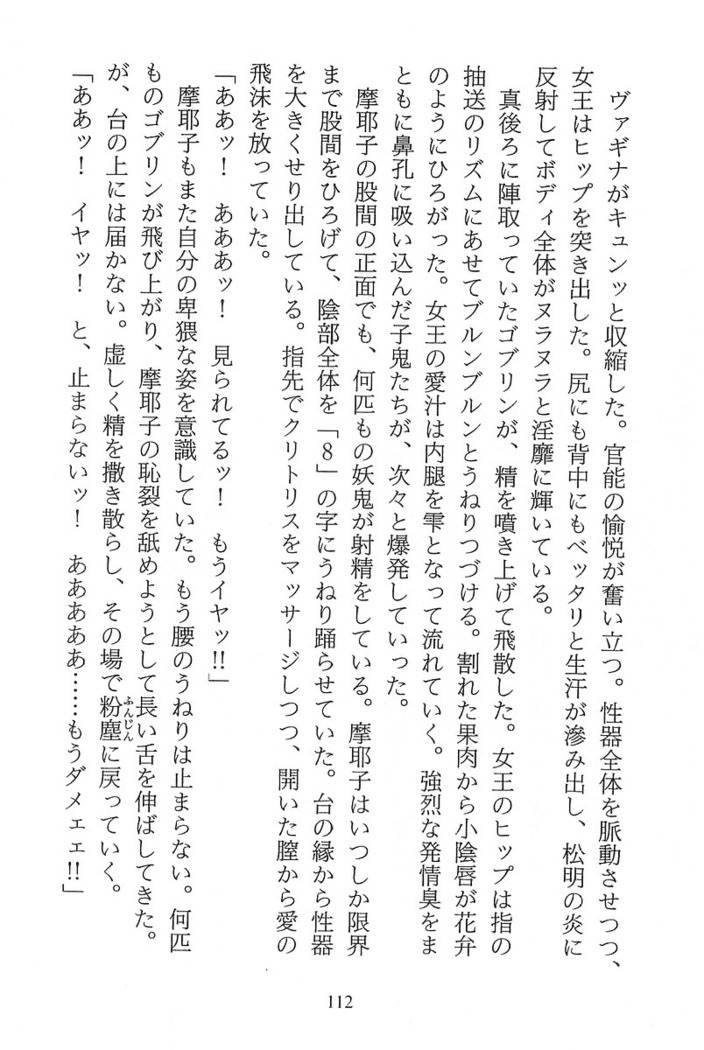 ヴァギナがキュンッと収縮した。官能の愉悦が奮い立つ。性器全体を脈動させつつ、
女王はヒップを突き出した。尻にも背中にもベッタリと生汗が滲み出し、松明の炎に
反射してボディ全体がヌラヌラと淫靡に輝いている。
真後ろに陣取っていたゴブリンが、精を噴き上げて飛散した。女王のヒップは指の
抽送のリズムにあせてブルンブルンとうねりつづける。割れた果肉から小陰唇が花弁
のようにひろがった。女王の愛汁は内腿を雫となって流れていく。強烈な発情臭をま
ともに鼻孔に吸い込んだ子鬼たちが、次々と爆発していった。
摩耶子の股間の正面でも、何匹もの妖鬼が射精をしている。摩耶子はいつしか限界
まで股間をひろげて、陰部全体を「8」の字にうねり踊らせていた。台の縁から性器
を大きくせり出している。指先でクリトリスをマッサージしつつ、開いた膣から愛の
飛沫を放っていた。
「ああッ！　あああッ！　見られてるッ！　もうイヤッ!!」
摩耶子もまた自分の卑猥な姿を意識していた。もう腰のうねりは止まらない。何匹
ものゴブリンが飛び上がり、摩耶子の恥裂を舐めようとして長い舌を伸ばしてきた。
が、台の上には届かない。虚しく精を撒き散らし、その場で粉塵ふんじんに戻っていく。
「ああッ！　イヤッ！　と、止まらないッ！　あああああ……もうダメェェ!!」
112